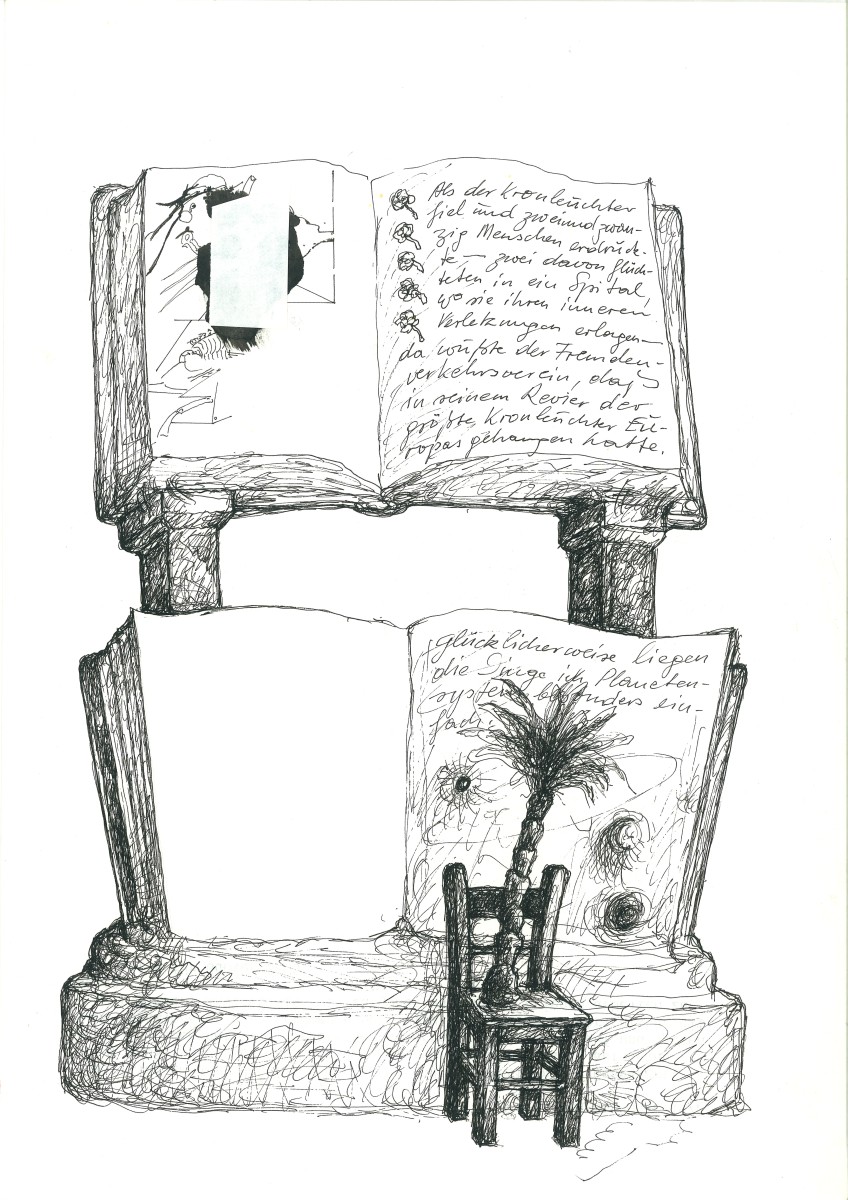 Als der Kronleuchter
fiel und zweiundzwan-
zig Menschen erdrück-
te – zwei davon flüch-
teten in ein Spital,
wo sie ihren inneren
Verletzungen erlagen –
da wußte der Fremden-
verkehrsverein, daß
in seinem Revier der
größte Kronleuchter Eu-
ropas gehangen hatte.
Glücklicherweise liegen
die Dinge im Planeten-
system besonders ein-
fach: